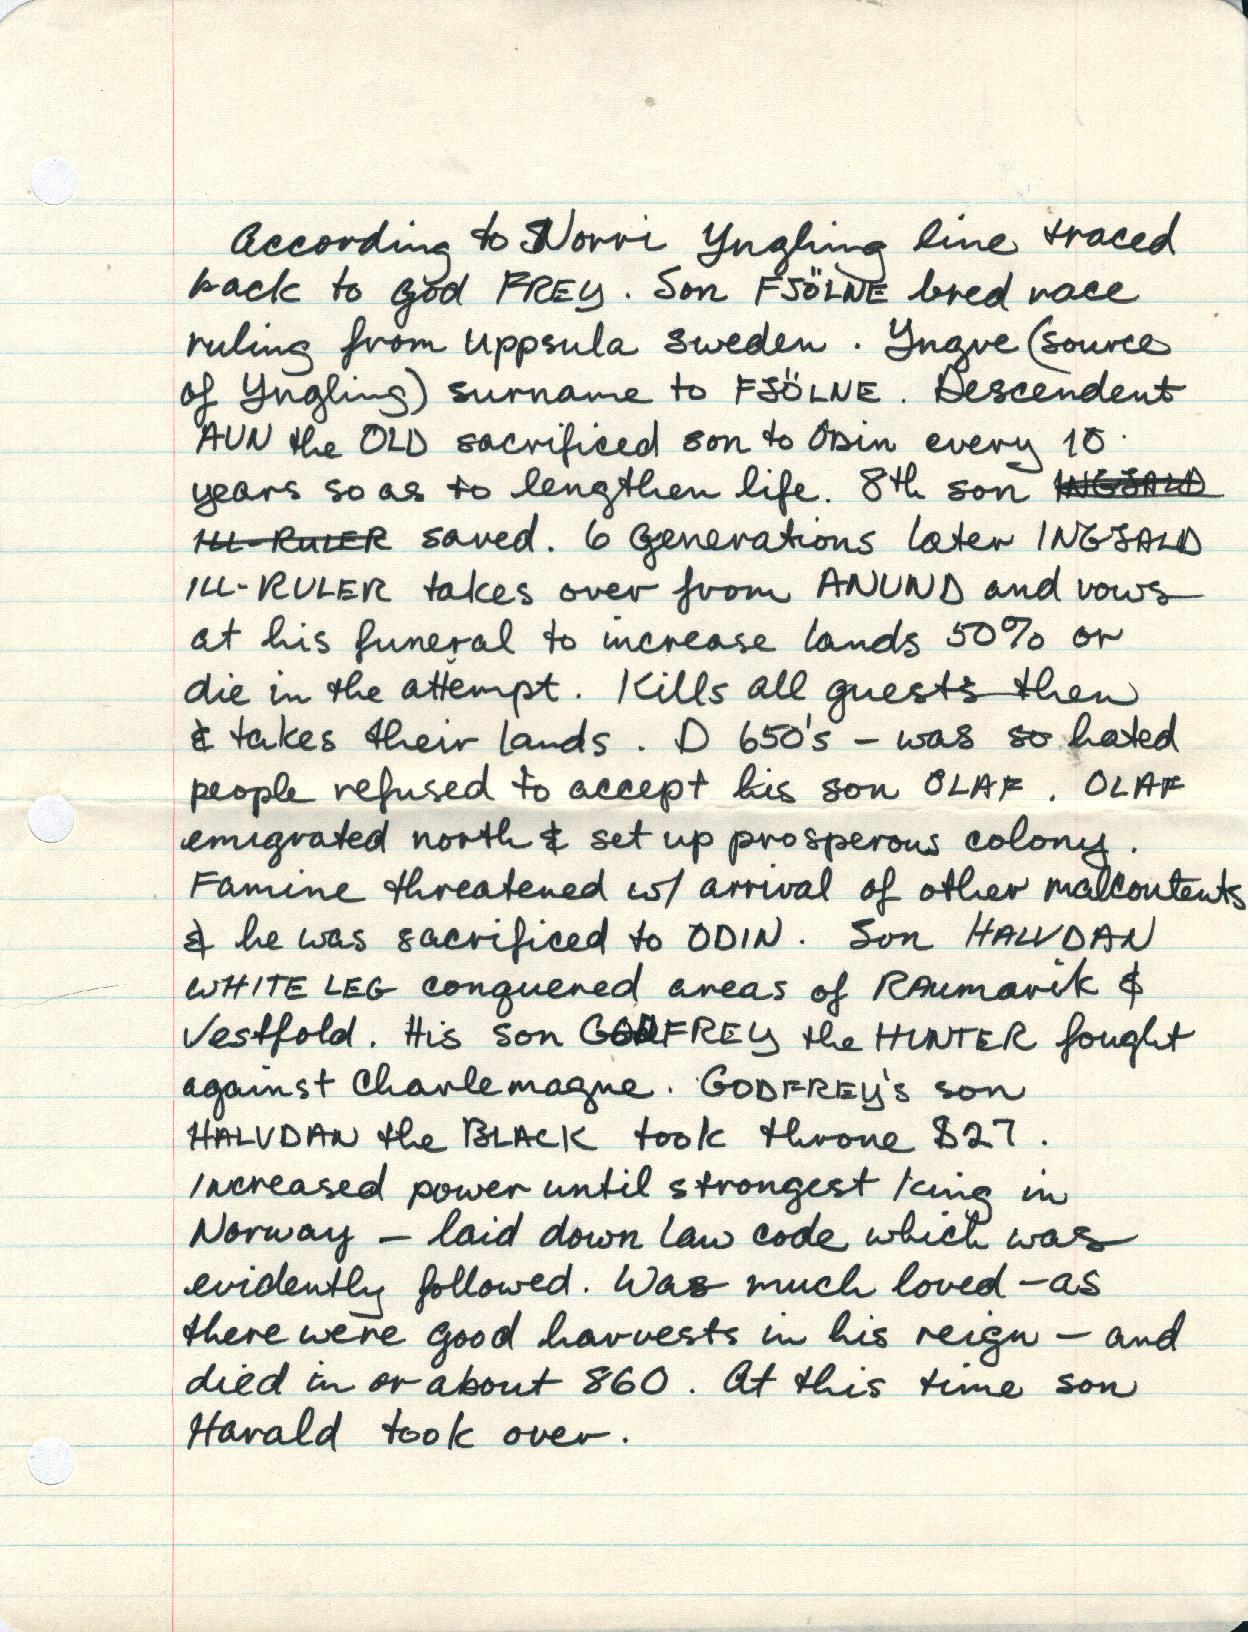 According to Snorri Yngling line traced
back to god FREY. Son FJÖLNE bred race
ruling from Uppsula Sweden. Yngve (source
of Yngling) surname to FJÖLNE. Descendent
AUN the OLD sacrificed son to Odin every 10
years so as to lengthen life. 8th son INGJALD
ILL-RULER saved. 6 Generations later INGJALD
ILL-RULER takes over from ANUND and vows
at his funeral to increase lands 50% or
die in the attempt. Kills all guests then
& takes their lands. D 650's - was so hated
people refused to accept his son OLAF. OLAF
emigrated north & set up prosperous colony.
Famine threatened w/ arrival of other malcontents
& he was sacrificed to ODIN. Son HALVDAN
WHITE LEG conquered areas of RAumarik &
Vestfold. His son GODFREY the HUNTER fought
against Charlemagne. GODFREY's son
HALVDAN the BLACK took throne 827.
Increased power until strongest king in
Norway - laid down law code which was
evidently followed. Was much loved - as
there were good harvests in his reign - and
died in or about 860. At this time son
Harald took over.